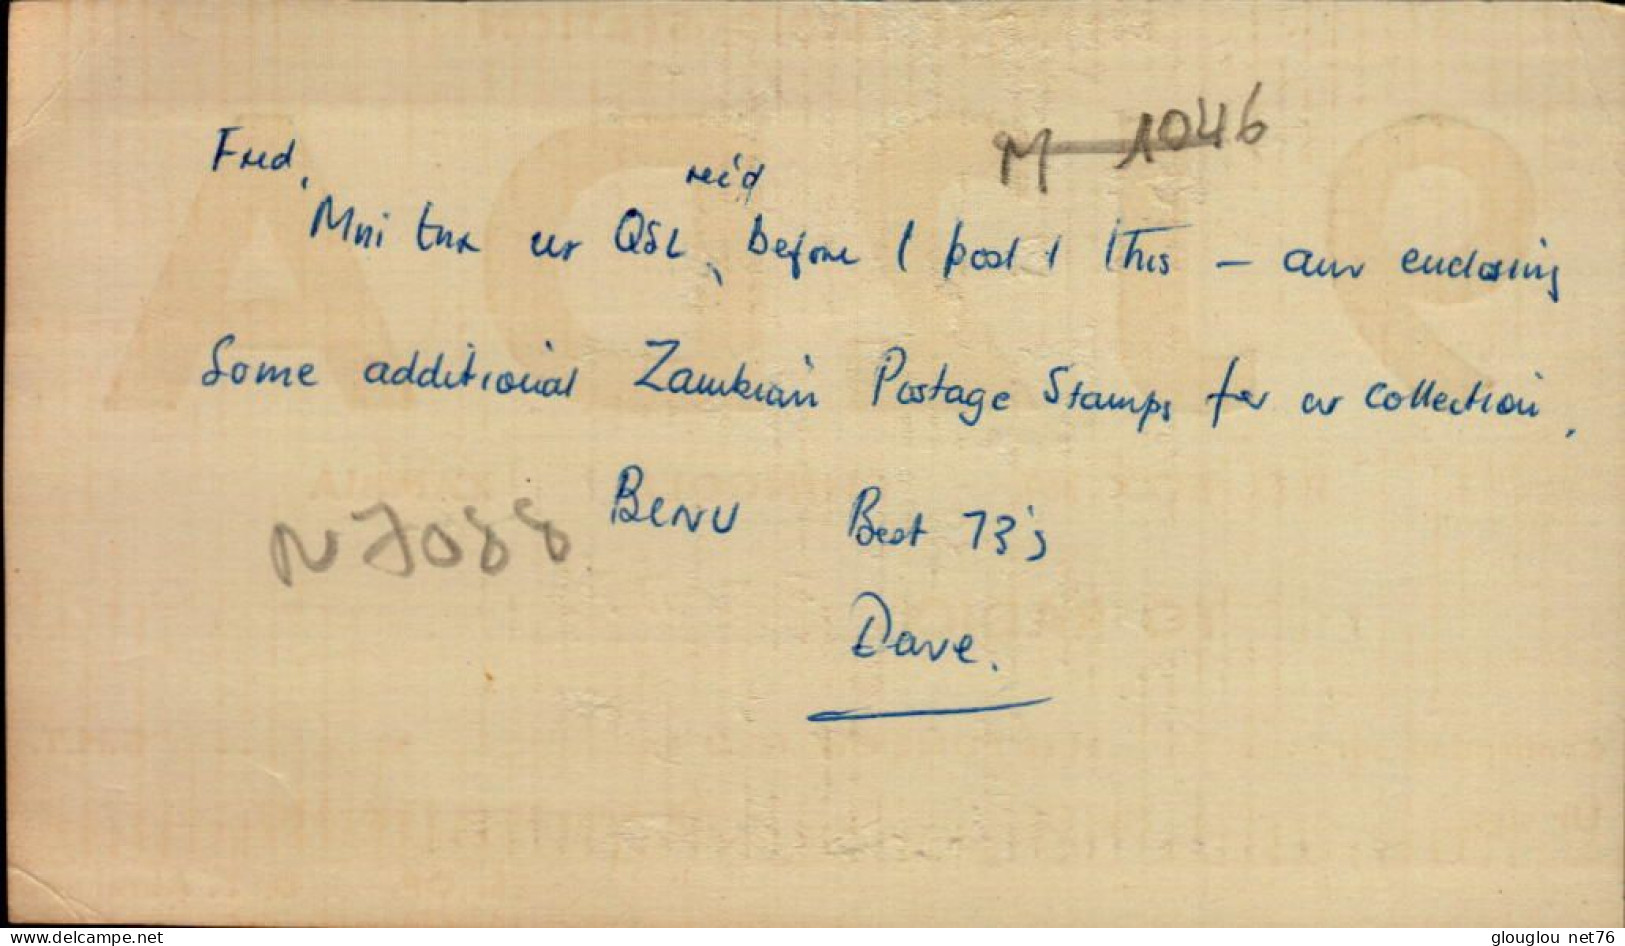 Fred,
M 1046
rec'd
Mni tnx ur QSL, before I post this – am enclosing
Some additional Zambian Postage Stamps for ur collection,
N7088
BCNU Best 73's
Dave.
www.delcampe.net
glouglou net76